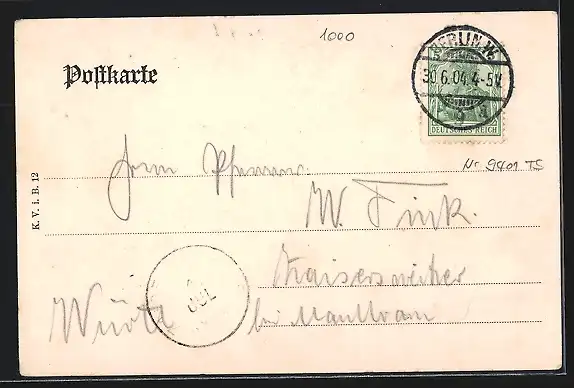 1000
BERLIN. W.
30.6.04. 4-5N.
DEUTSCHES REICH
Postkarte
Nr 9401 TS
K. V. i. B. 12
Herrn Pfarrer
W. Fink.
Kaisersweiher
Württ bei Maulbronn
JUL